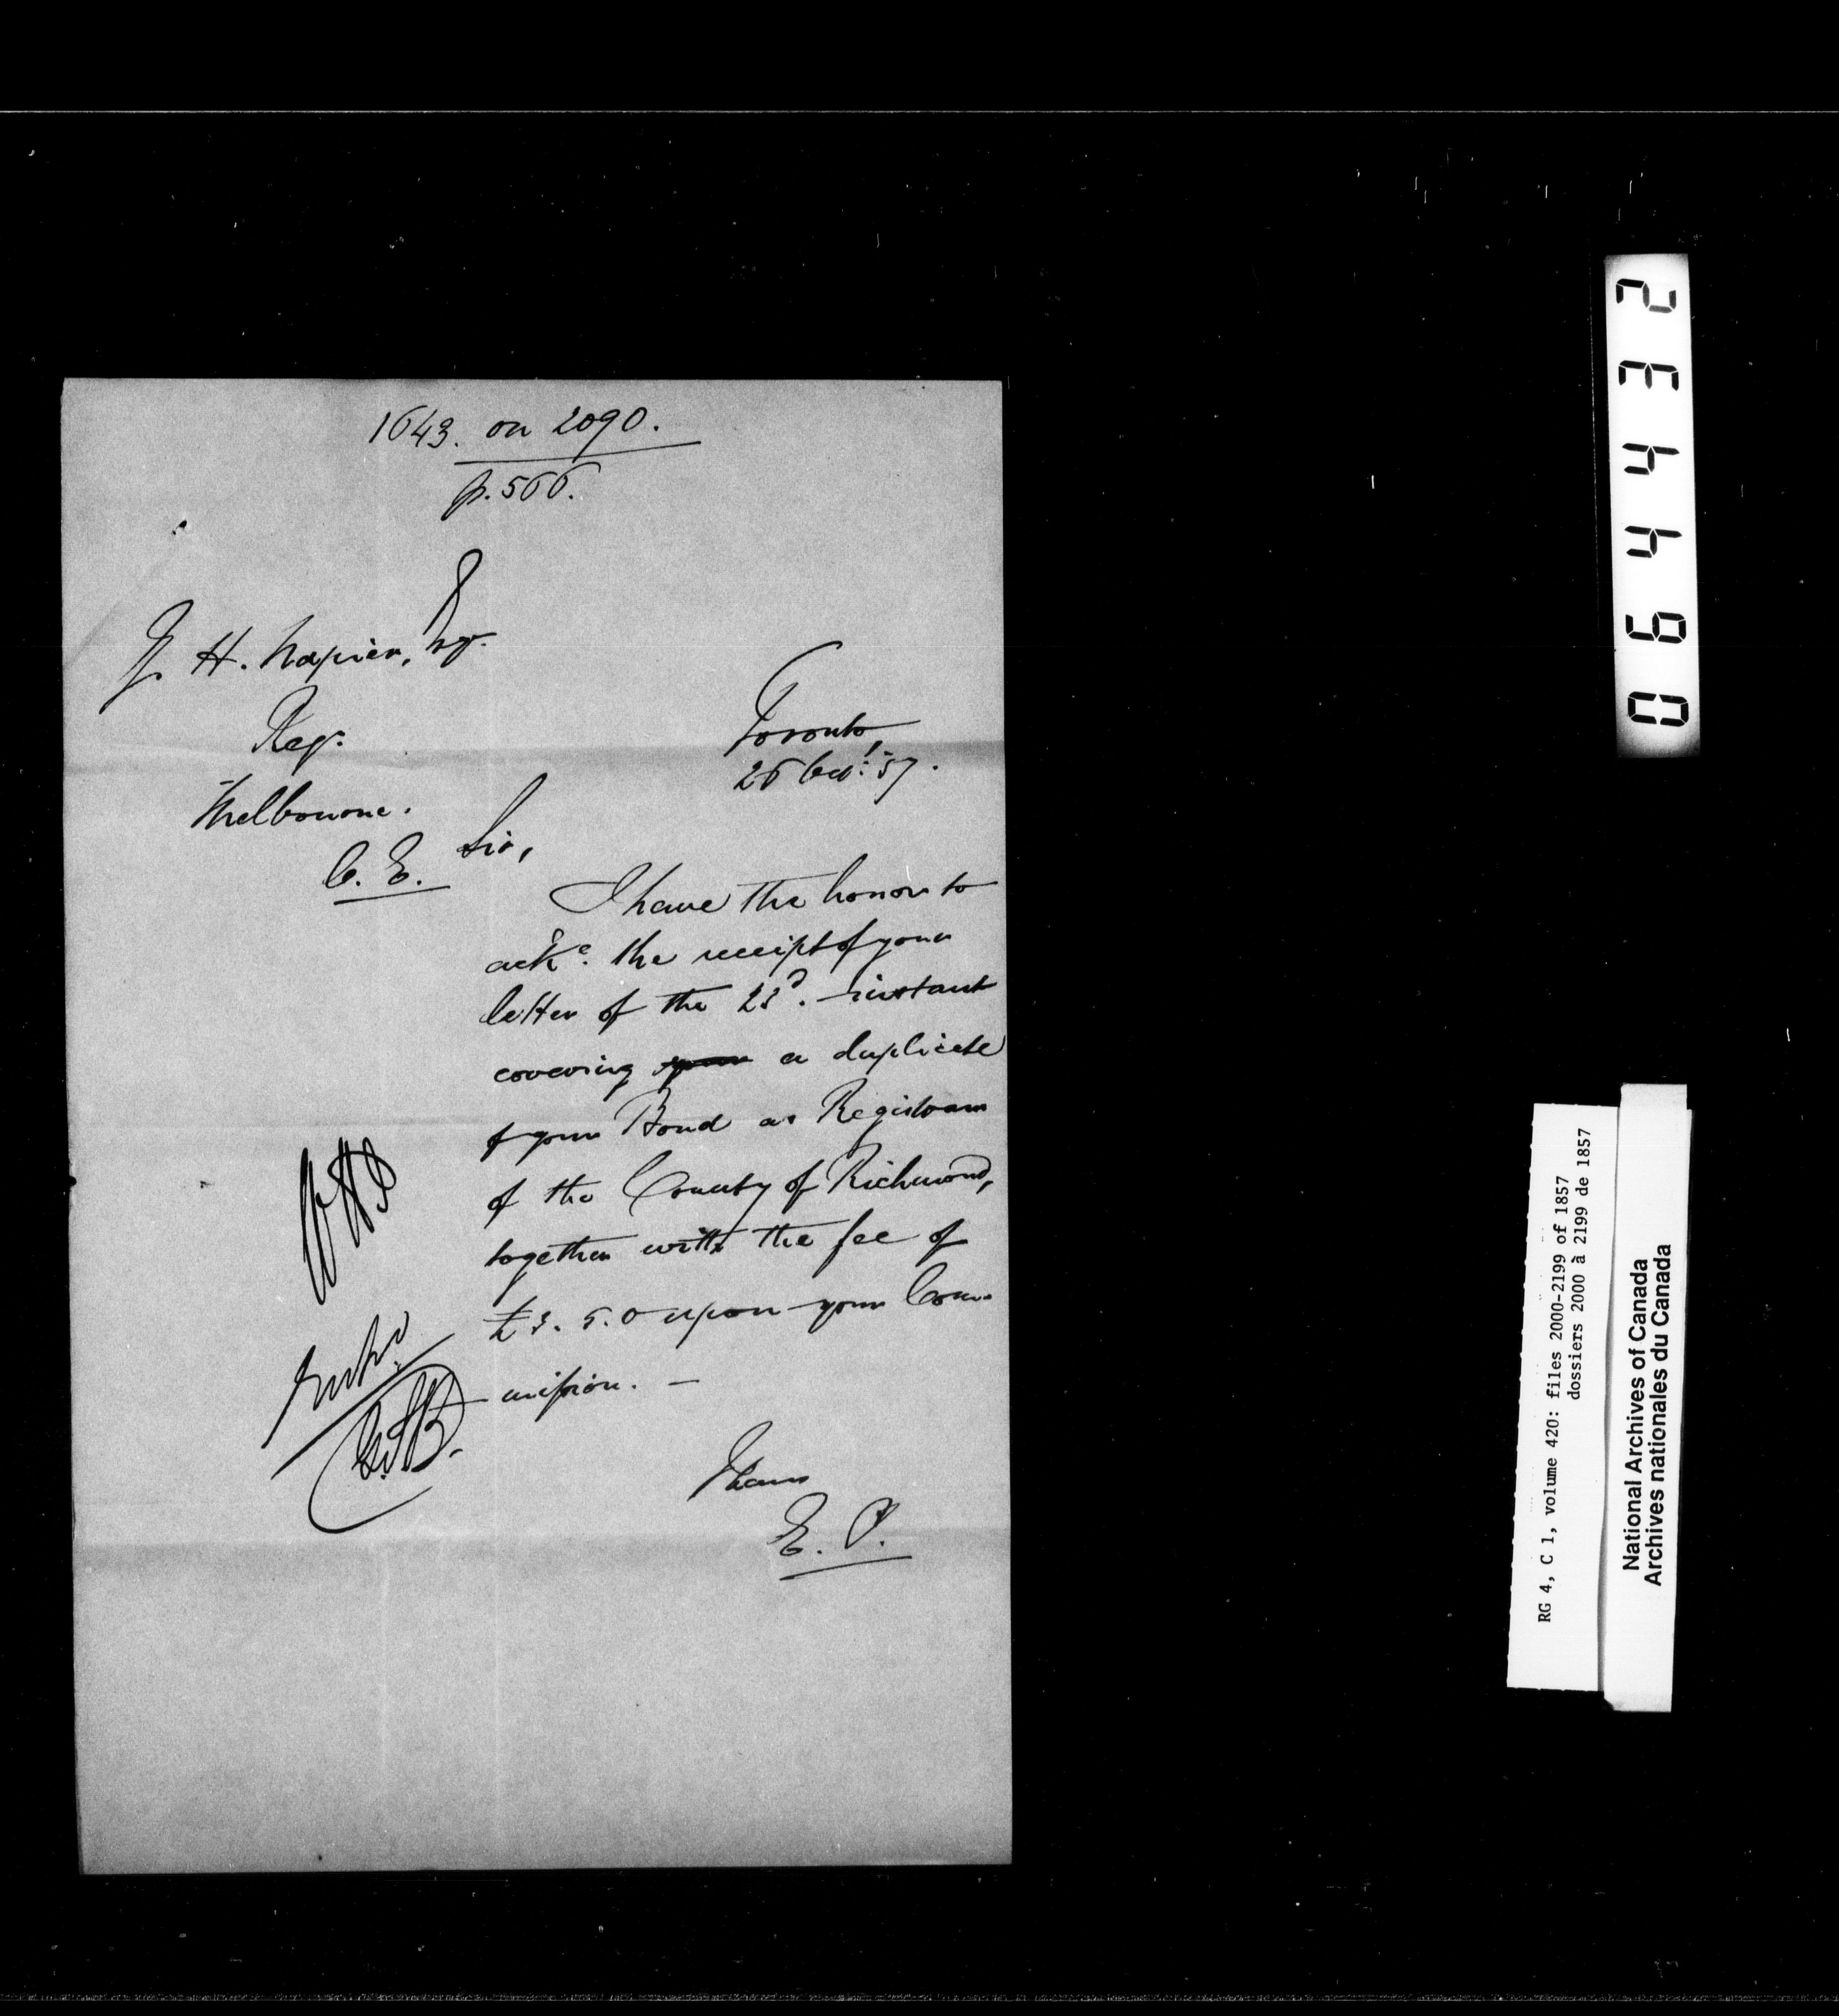 1643. on 2090.
p. 566.
J. H. Napier, Esqr.
Regr.
Melbourne.
C. E.
Toronto,
26 Oct! 57.
Sir,
I have the honor to
acke. the receipt of your
letter of the 23d. instant
covering your a duplicate
of your Bond as Registrar
of the County of Richmond,
together with the fee of
£3. 5. 0 upon your Com-
-mission. -
I have
E. P.
064432
RG 4, C 1, volume 420: files 2000-2199 of 1857
dossiers 2000 à 2199 de 1857
National Archives of Canada
Archives nationales du Canada